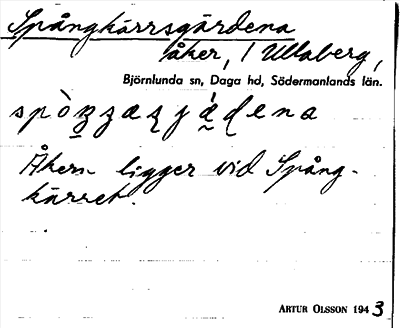 Spångkärrsgärdena
åker, / Ullaberg,
Björnlunda sn, Daga hd, Södermanlands län.
Åkern ligger vid Spång-
kärret.
ARTUR OLSSON 1943